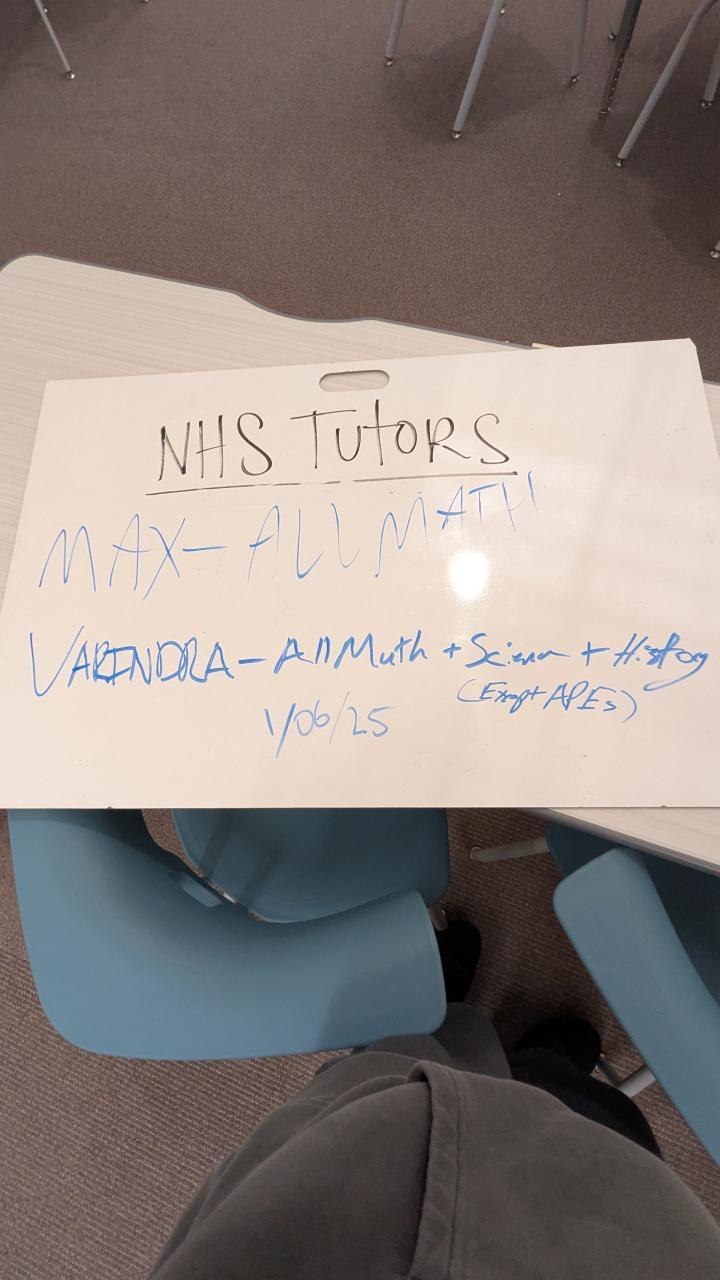 NHS TUTORS
MAX - ALL MATH
VARENDRA - All Math + Science + History
(Except APES)
1/06/25